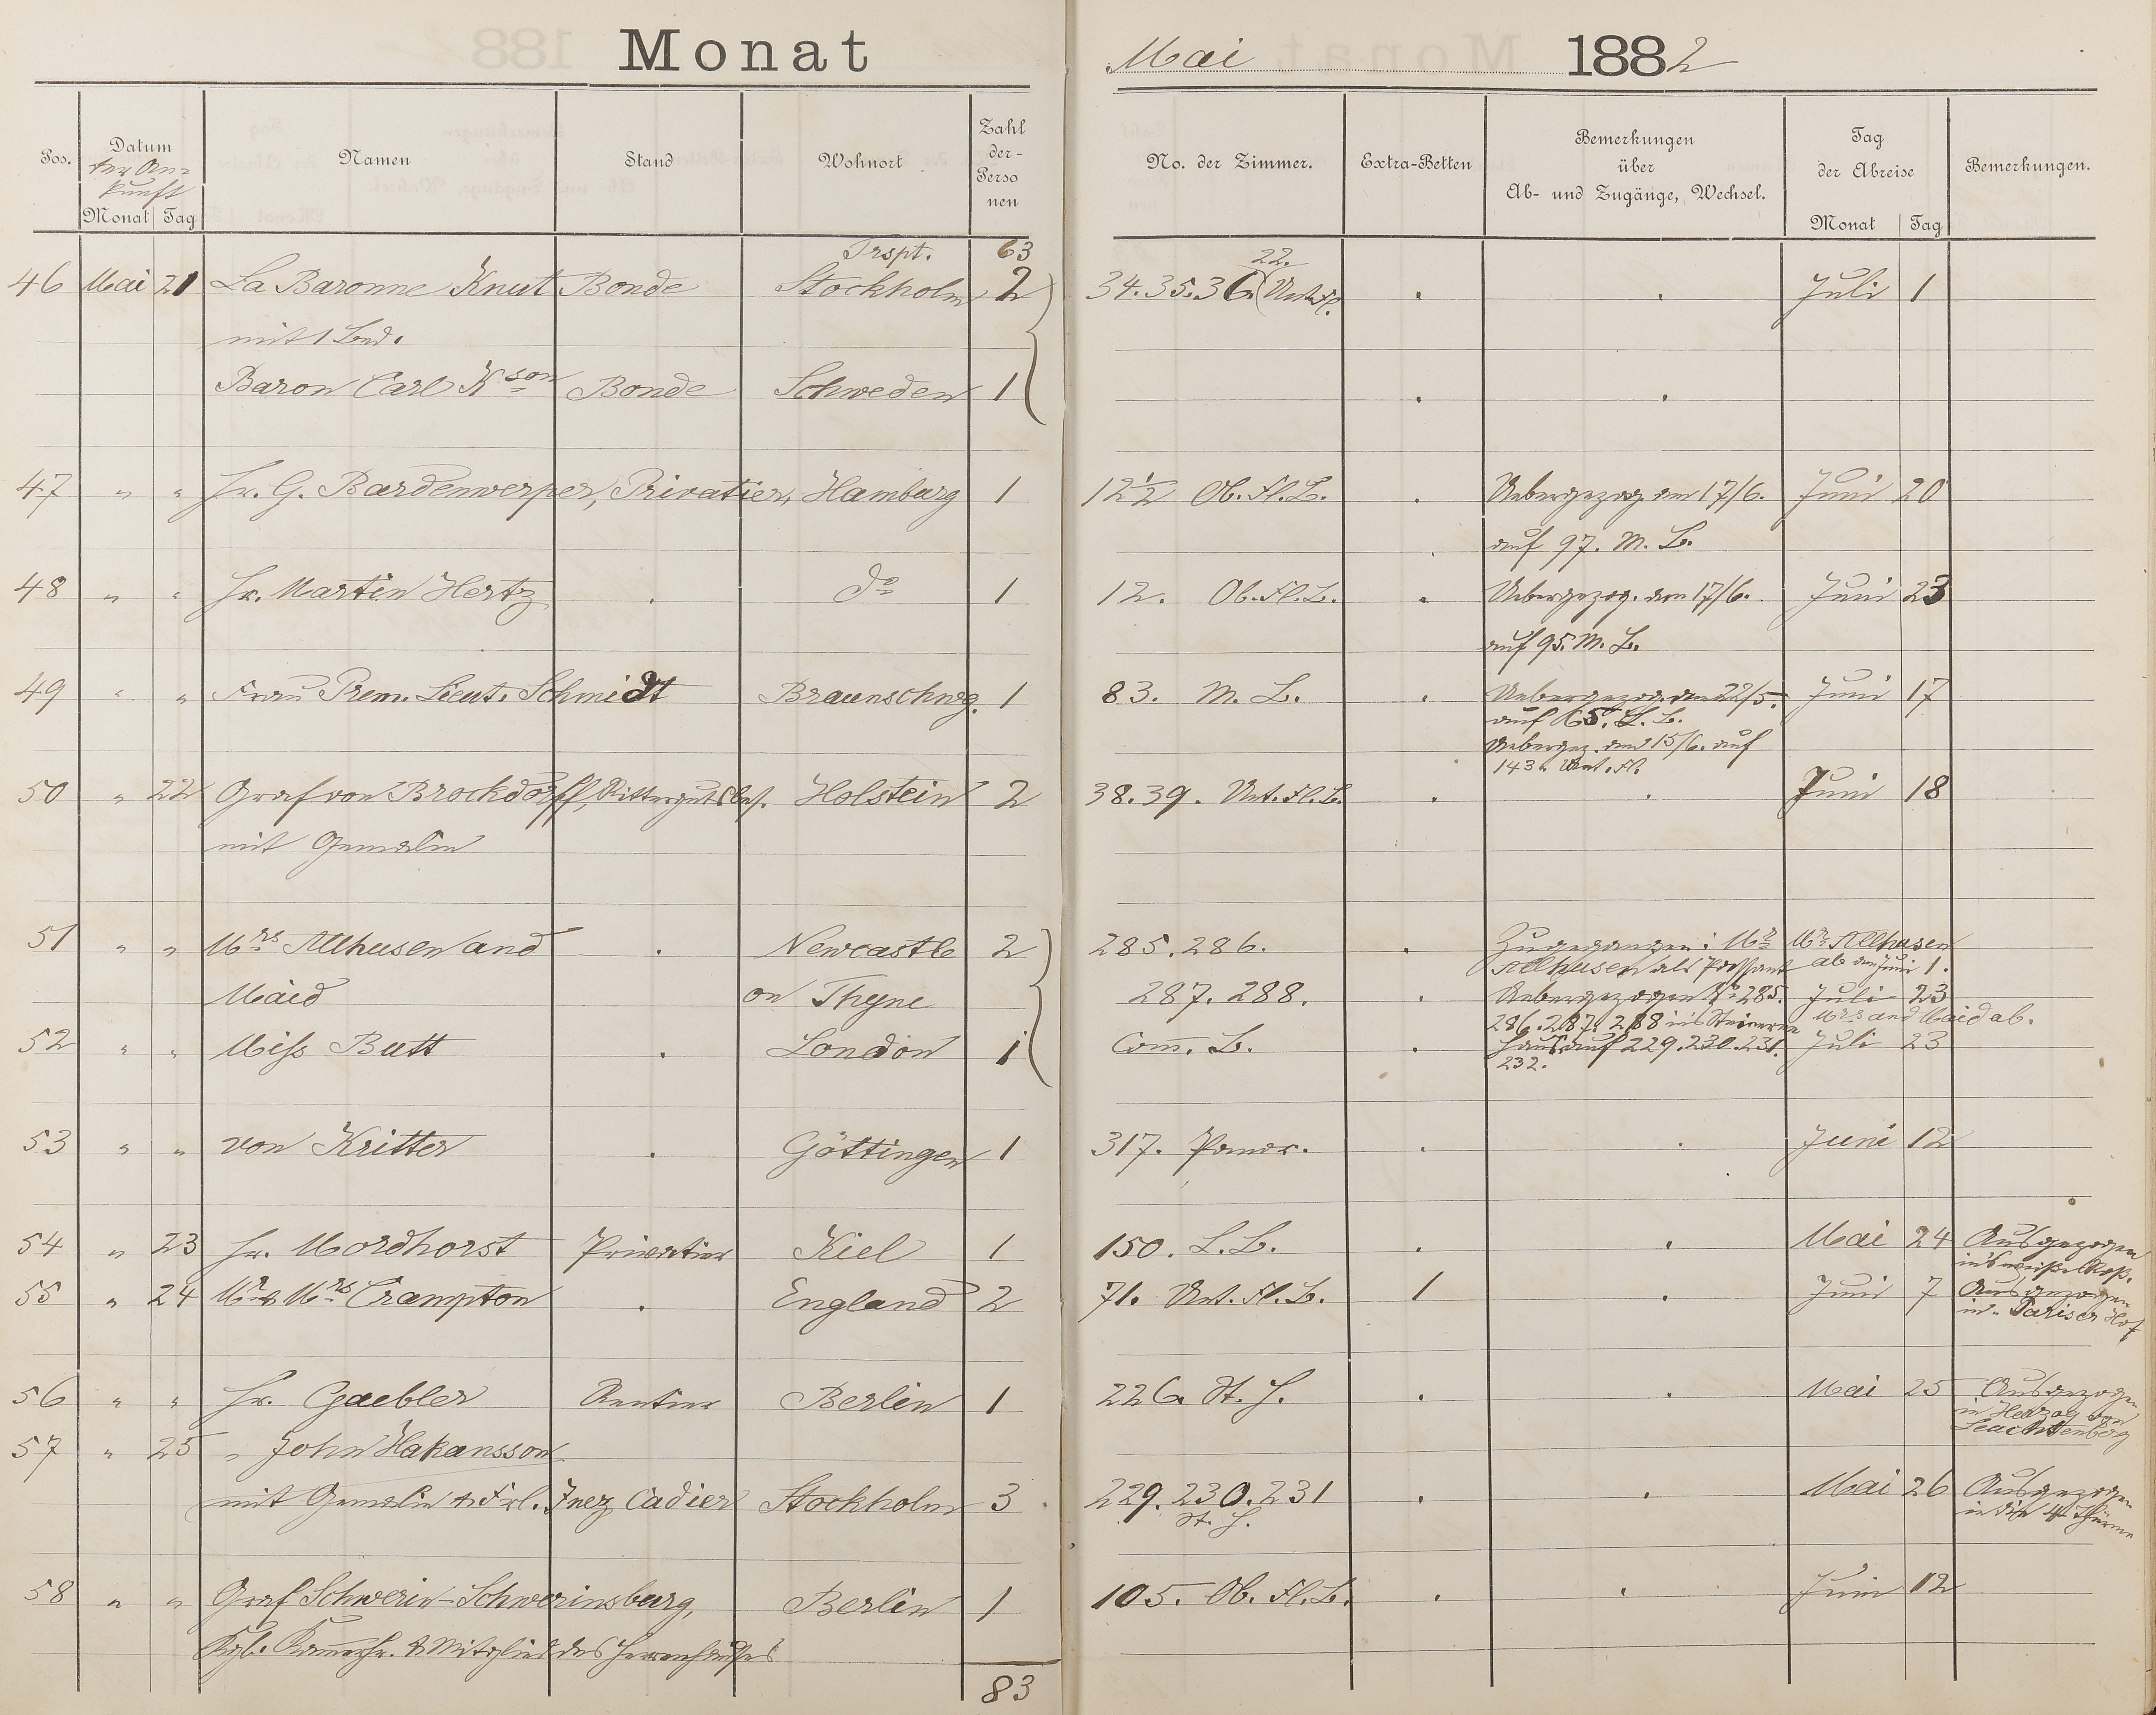 Monat Mai 1882
Pos. Datum der An=kunft Monat Tag Namen Stand Wohnort Zahl der-Personen No. der Zimmer. Extra-Betten Bemerkungen über Ab- und Zugänge, Wechsel. Tag der Abreise Monat Tag Bemerkungen.
Trspt. 63
46 Mai 21 La Baronne Knut Bonde Stockholm 2 34.35.36. 22. Unt. Fl. . . Juli 1
mit 1 Bed.
Baron Carl Kson Bonde Schweden 1 . .
47 " " Hr. G. Bardenwerper, Privatier, Hamburg 1 12½ Ob. Fl. B. . Uebergezog. am 17/6. Juni 20
auf 97. M. B.
48 " " Hr. Martin Hertz . do 1 12. Ob. Fl. B. . Uebergezog. am 17/6. Juni 23
auf 95. M. B.
49 " " Frau Prem. Lieut. Schmidt Braunschwg. 1 83. M. B. . Uebergezog. am 22/5. Juni 17
auf 65. B.
Uebergez. am 15/6. auf
143 Unt. Fl.
50 " 22 Graf von Brockdorff, Rittergutsbes. Holstein 2 38.39. Unt. Fl. B. . . Juni 18
mit Gemalin
51 " " Mrs Allhusen and . Newcastle 2 285.286. . Zugegangen: Mr Mr Allhusen
Allhusen als Passant ab am Juni 1.
Maid on Thyne 287. 288. . Uebergezogen No 285. Juli 23
286.287. 288 in's Steinerne Mrs and Maid ab.
52 " " Miss Butt . London 1 Com. B. . Haus auf 229.230.231. Juli 23
232.
53 " " von Kritter . Göttingen 1 317. . . Juni 12
54 " 23 Hr. Mordhorst Privatier Kiel 1 150. L. B. . . Mai 24 Ausgezogen
in's weiße Roß.
55 " 24 Mr & Mrs Crampton . England 2 71. Unt. Fl. B. 1 . Juni 7 Ausgezogen
in Pariser Hof
56 " " Hr. Gaebler Rentier Berlin 1 226 St. H. . . Mai 25 Ausgezogen
in Herzog von
Leuchtenberg
57 " 25 " John Hakansson
mit Gemalin & Frl. Inez Cadier Stockholm 3 229.230.231 . . Mai 26 Ausgezogen
St. H. in die 4 Thürme
58 " " Graf Schwerin-Schwerinsburg, Berlin 1 105. Ob. Fl. B. . . Juni 12
Kgl. Kammerhr. & Mitglied des Herrenhauses
83